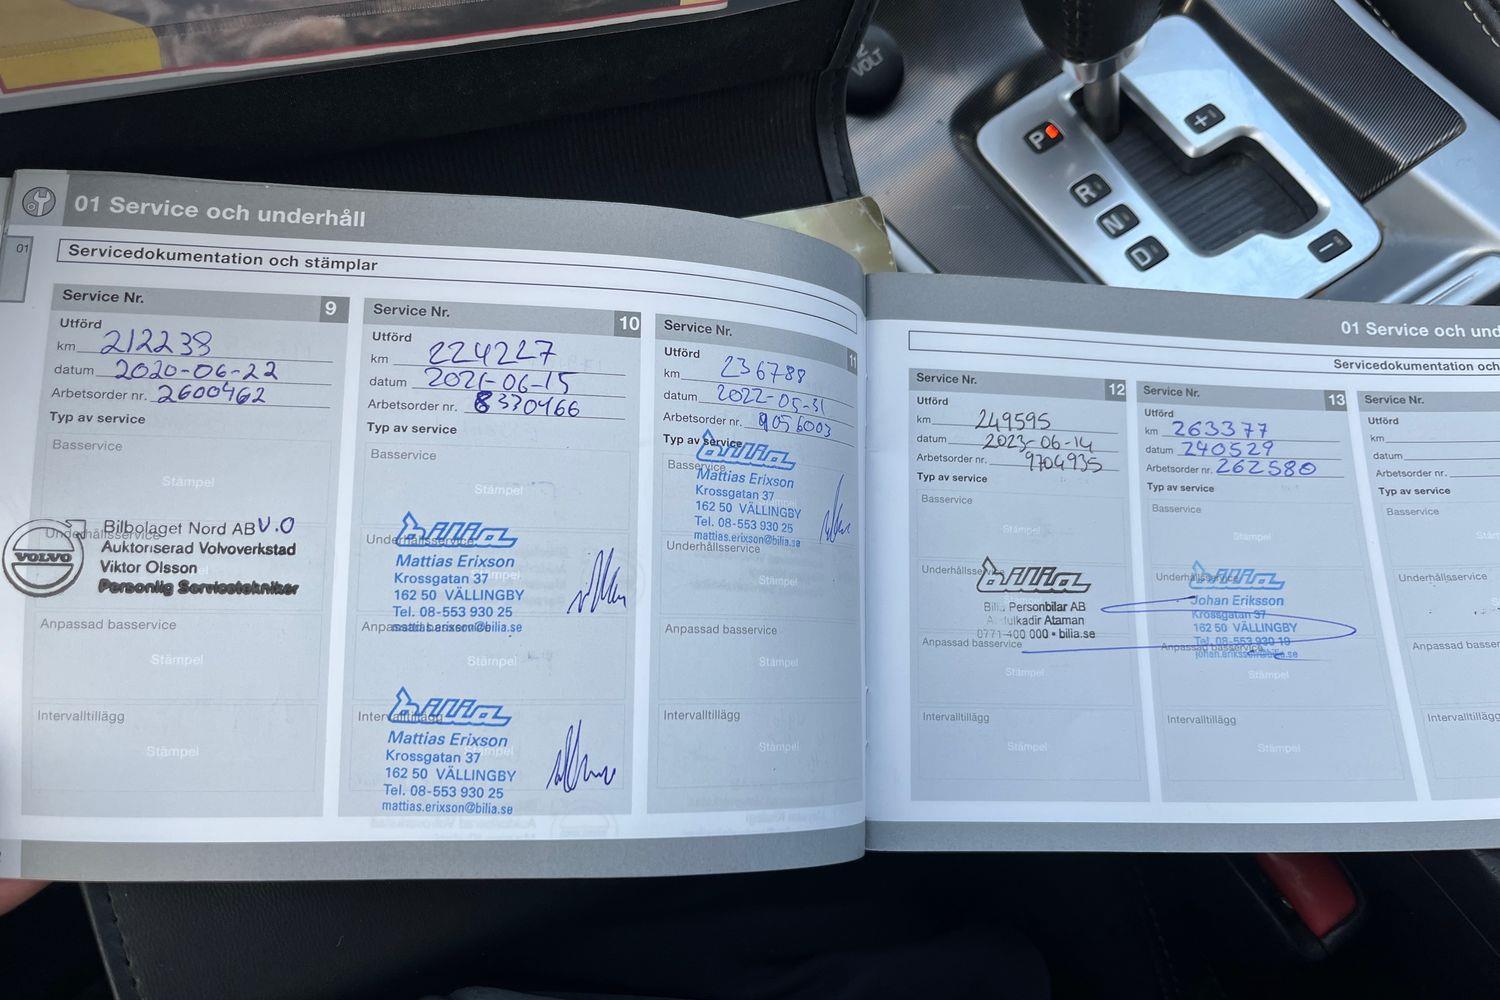 12 VOLT
P
R
N
D
+
−
01 Service och underhåll
01
Servicedokumentation och stämplar
Service Nr. 9
Utförd
km 212238
datum 2020-06-22
Arbetsorder nr. 2600462
Typ av service
Basservice
Stämpel
Underhållsservice
Bilbolaget Nord AB V.O
Auktoriserad Volvoverkstad
Viktor Olsson
Personlig Servicetekniker
VOLVO
Anpassad basservice
Stämpel
Intervalltillägg
Stämpel
Service Nr. 10
Utförd
km 224227
datum 2021-06-15
Arbetsorder nr. 8330466
Typ av service
Basservice
Stämpel
Underhållsservice
bilia
Mattias Erixson
Krossgatan 37
162 50 VÄLLINGBY
Tel. 08-553 930 25
mattias.erixson@bilia.se
Anpassad basservice
Stämpel
Intervalltillägg
bilia
Mattias Erixson
Krossgatan 37
162 50 VÄLLINGBY
Tel. 08-553 930 25
mattias.erixson@bilia.se
Service Nr. 11
Utförd
km 236788
datum 2022-05-31
Arbetsorder nr. 9056003
Typ av service
bilia
Basservice
Mattias Erixson
Krossgatan 37
162 50 VÄLLINGBY
Tel. 08-553 930 25
mattias.erixson@bilia.se
Underhållsservice
Stämpel
Anpassad basservice
Stämpel
Intervalltillägg
Stämpel
01 Service och und
Servicedokumentation och
Service Nr. 12
Utförd
km 249595
datum 2023-06-14
Arbetsorder nr. 9704935
Typ av service
Basservice
Stämpel
Underhållsservice
bilia
Bilia Personbilar AB
Abdulkadir Ataman
0771-400 000 • bilia.se
Anpassad basservice
Stämpel
Intervalltillägg
Stämpel
Service Nr. 13
Utförd
km 263377
datum 240529
Arbetsorder nr. 262580
Typ av service
Basservice
Stämpel
Underhållsservice
bilia
Johan Eriksson
Krossgatan 37
162 50 VÄLLINGBY
Tel. 08-553 930 19
johan.eriksson@bilia.se
Anpassad basservice
Stämpel
Intervalltillägg
Stämpel
Service Nr.
Utförd
km
datum
Arbetsorder nr.
Typ av service
Basservice
Stäm
Underhållsservice
Anpassad basser
Intervalltillägg